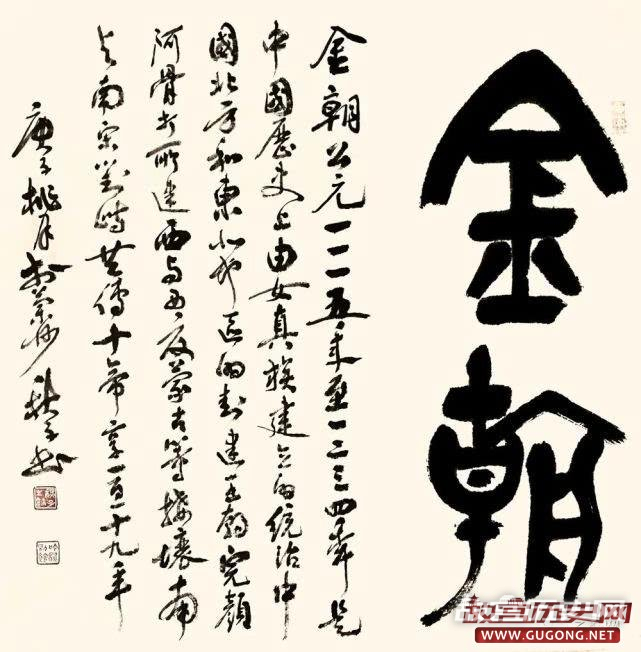 金朝
金朝公元一一一五年至一二三四年是
中國歷史上由女真族建立的統治中
國北方和東北地區的封建王朝完顏
阿骨打所建西与西夏蒙古等接壤南
与南宋對峙共傳十帝享一百十九年
庚子桃月於
故宫历史网
WWW.GUGONG.NET